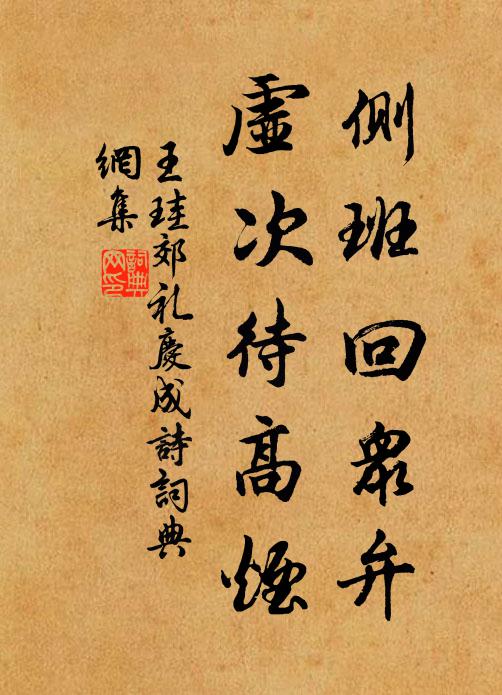 側班回眾弁
虛次待高煙
王珪郊礼慶成詩詞典
網集
詞典網印